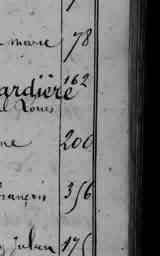 marie 78
ardière 162
Louis
ne 200
rançois 356
Julien 175